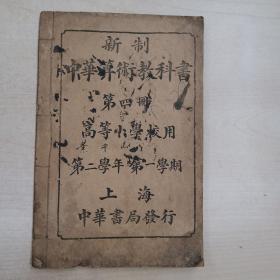 新制
中華算術教科書
第四冊
高等小學校用
第二學年第一學期
上海
中華書局發行